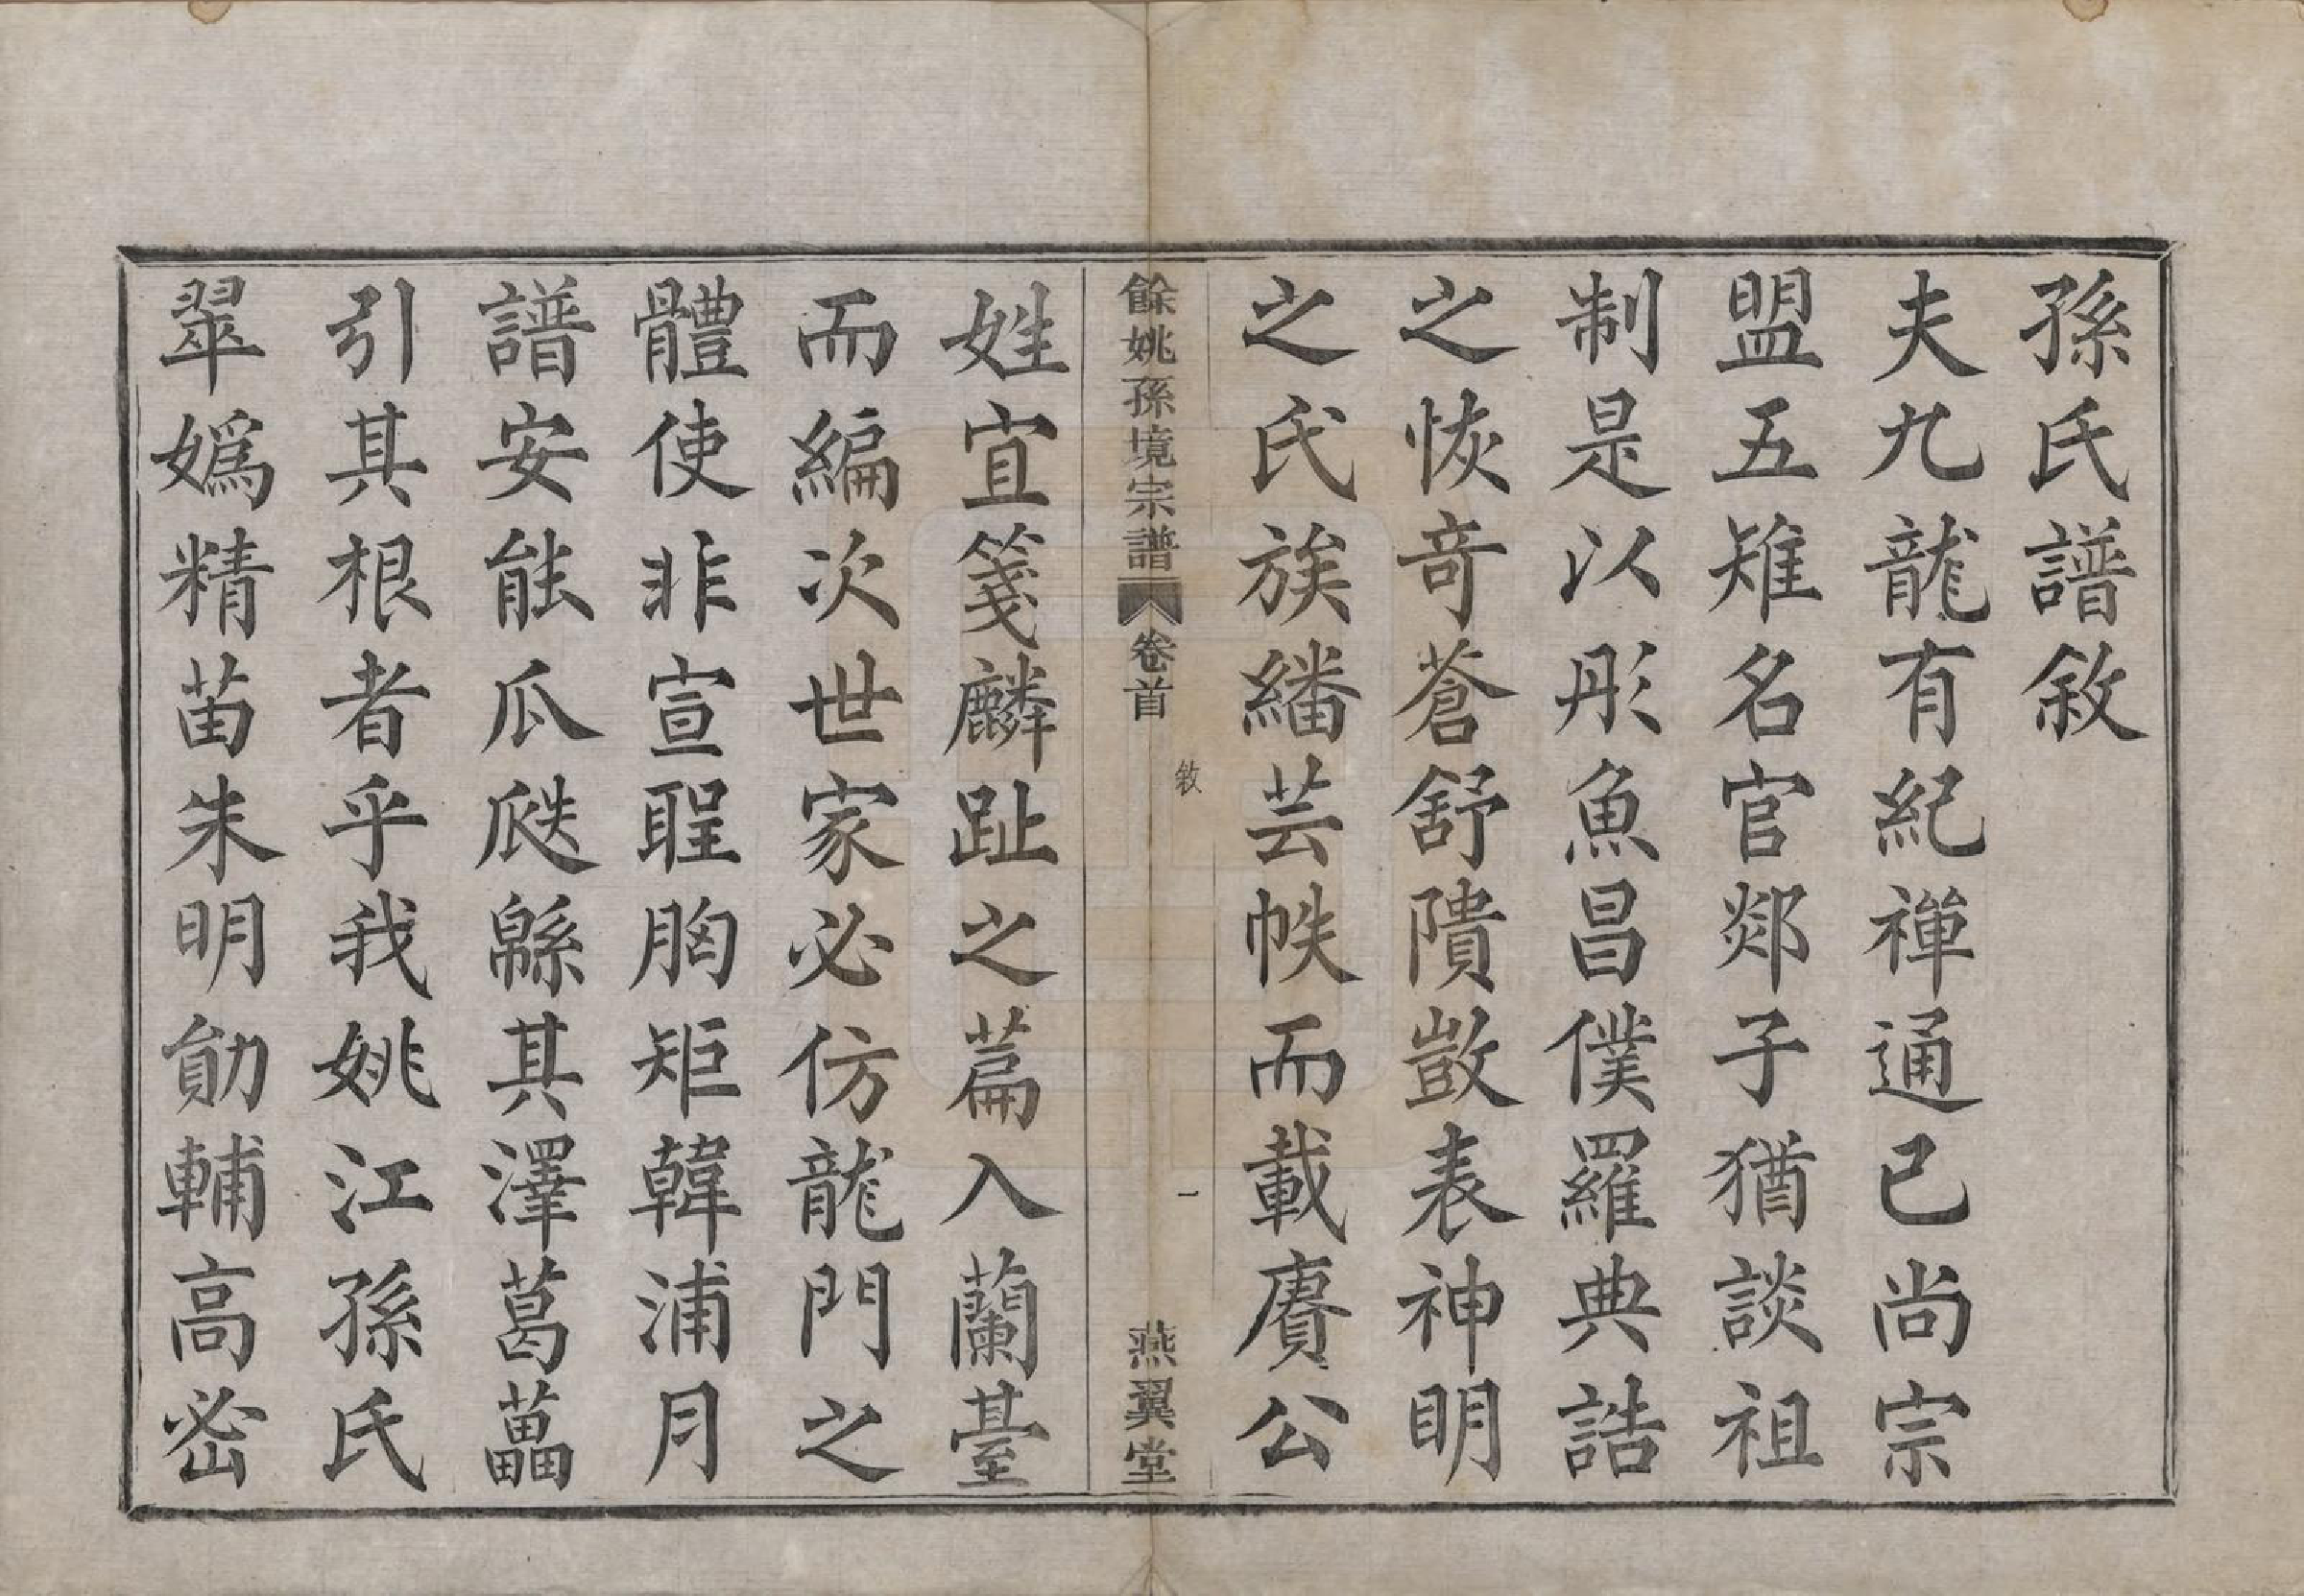 孫氏譜敘
夫九龍有紀禪通已尚宗
盟五雉名官郯子猶談祖
制是以彤魚昌僕羅典誥
之恢奇蒼舒隤敳表神明
之氏族繙芸帙而載賡公
餘姚孫境宗譜
卷首
敘
一
燕翼堂
姓宜箋麟趾之篇入蘭臺
而編次世家必仿龍門之
體使非宣聖胸矩韓浦月
譜安能瓜瓞緜其澤葛藟
引其根者乎我姚江孫氏
翠嬀精苗朱明勛輔高密